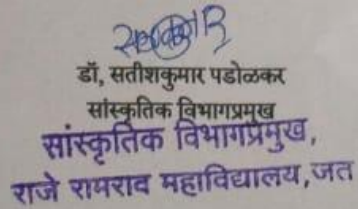 डॉ, सतीशकुमार पडोळकर
सांस्कृतिक विभागप्रमुख
सांस्कृतिक विभागप्रमुख,
राजे रामराव महाविद्यालय,जत